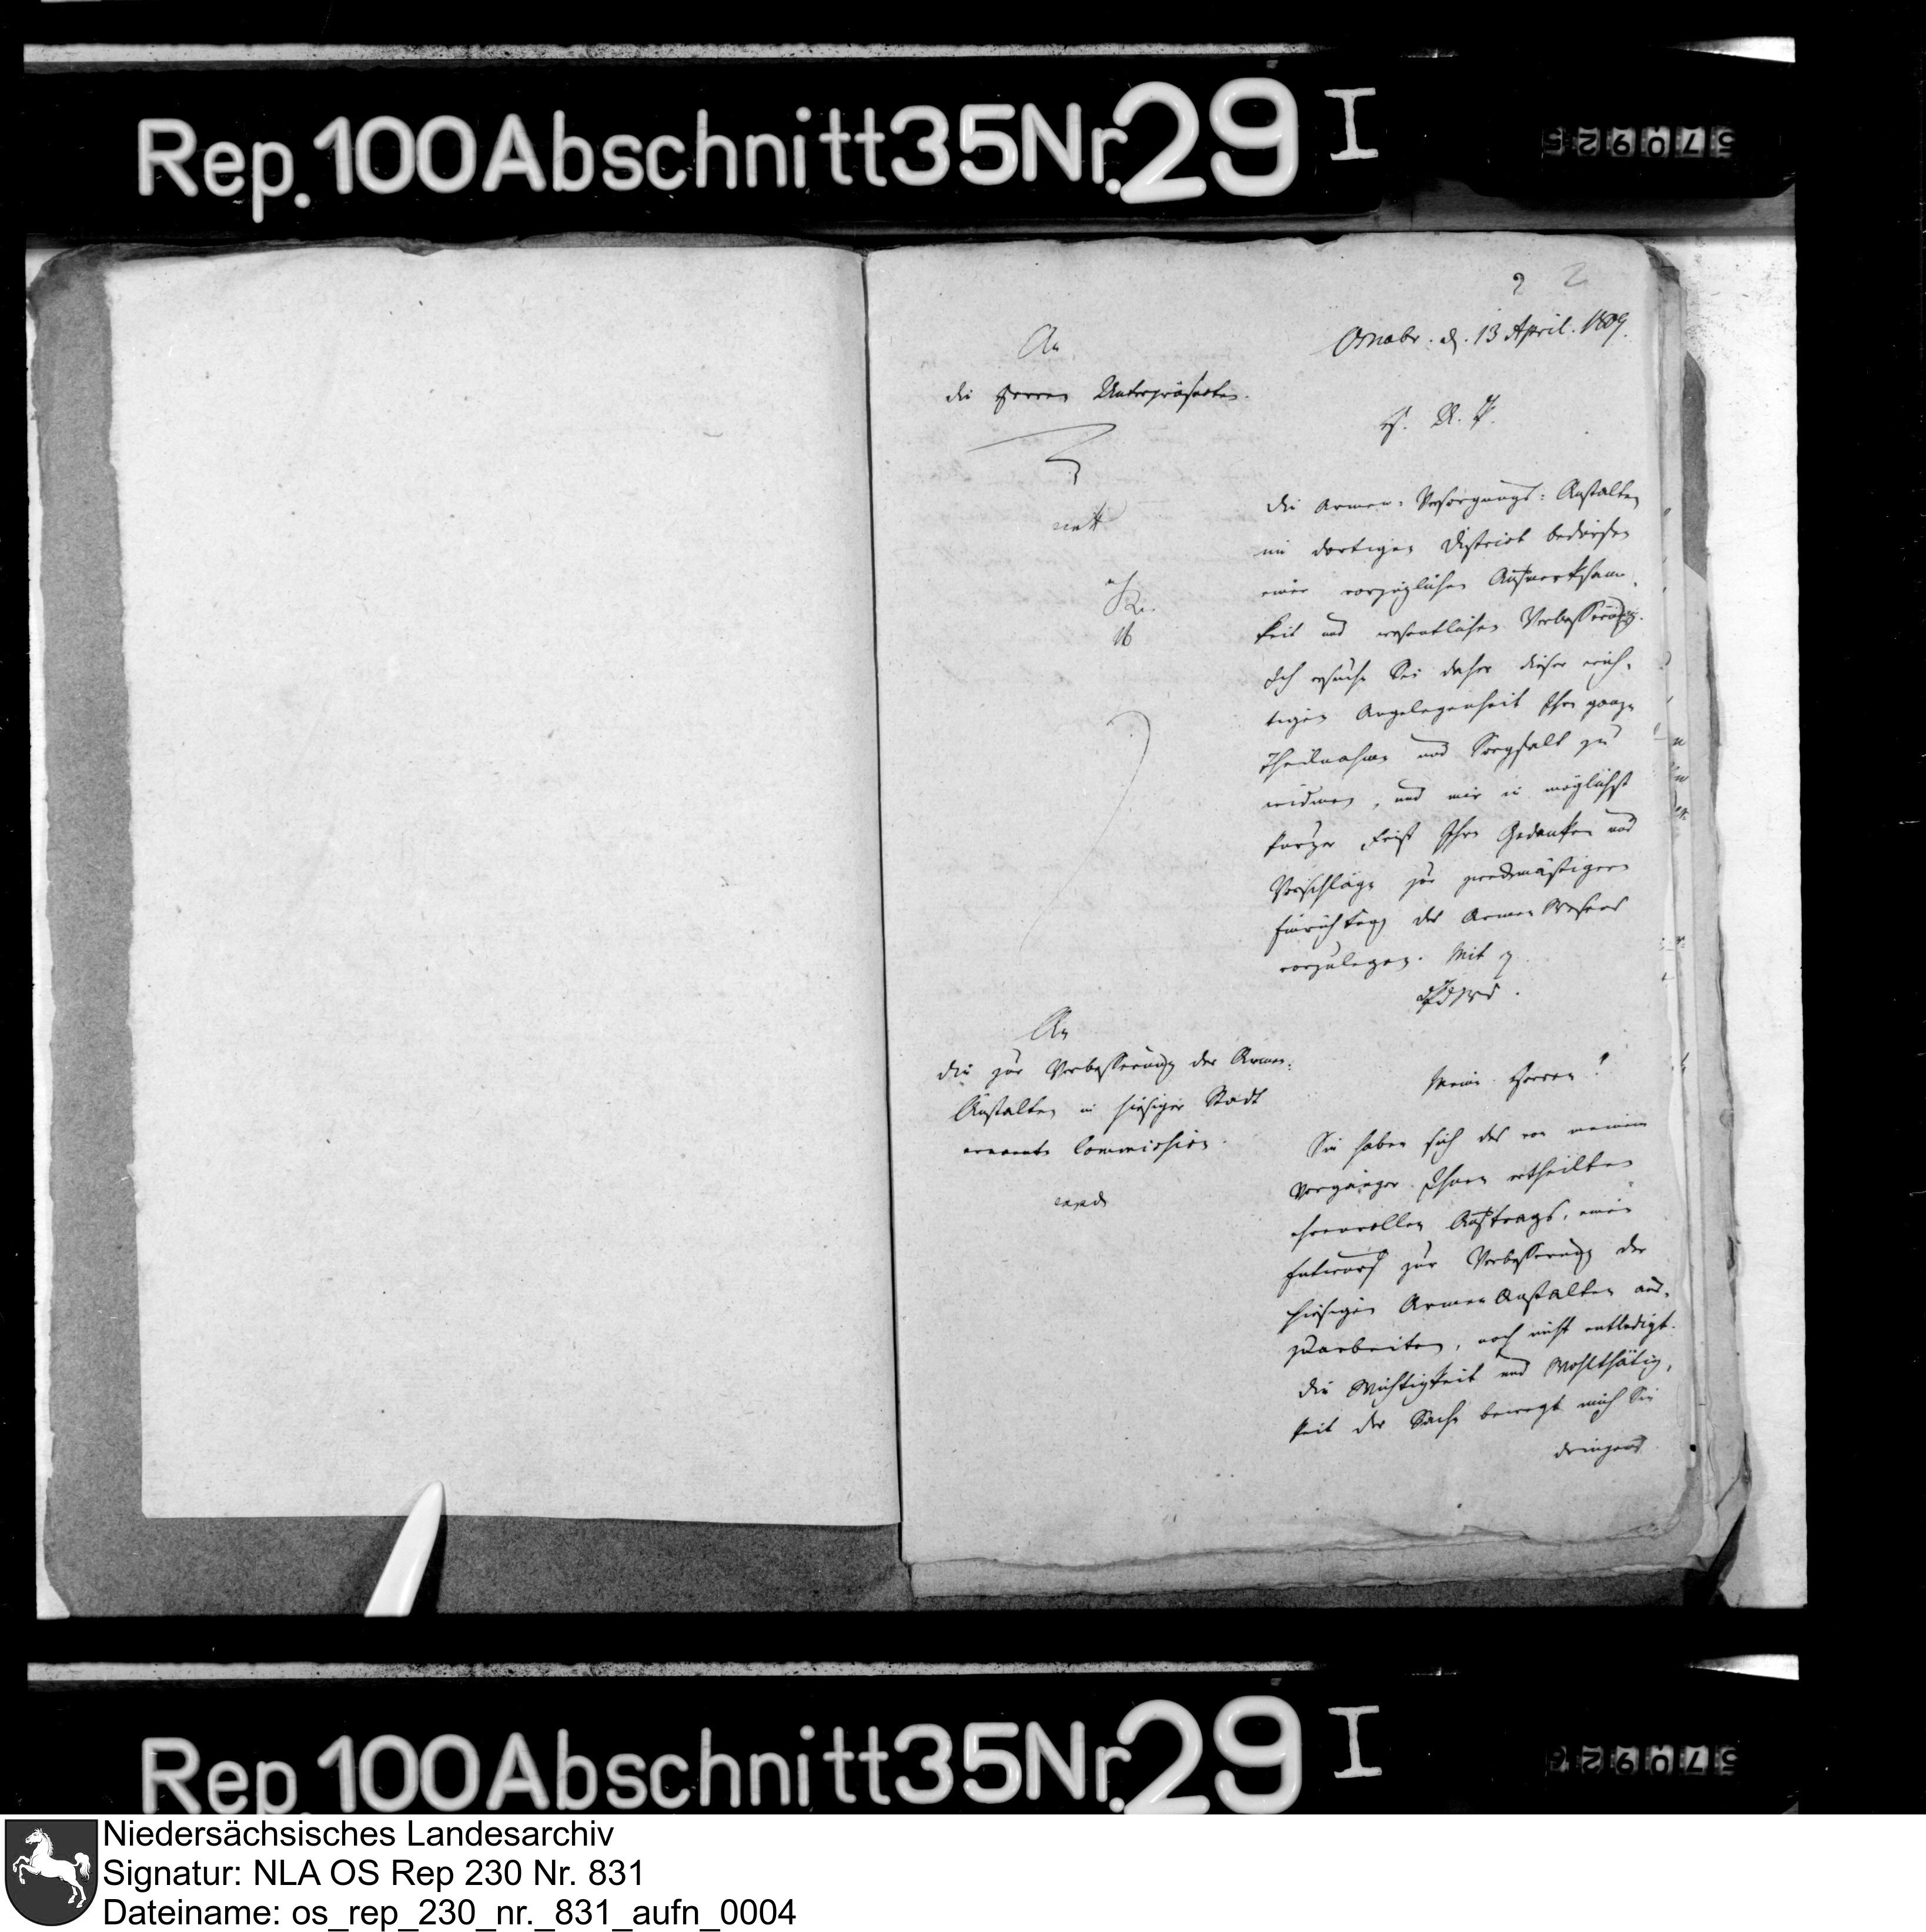 Rep. 100 Abschnitt 35 Nr. 29 I
570925
2 2
Osnabr. d. 13 April. 1809.
An
die Herren Unterpräfecten.
H. U. P.
Die Armen-Versorgungs-Anstalten
im dortigen District bedürfen
einer vorzüglichen Aufmerksam-
keit und wesentlichen Verbesserung.
Ich ersuche Sie daher dieser wich-
tigen Angelegenheit Ihre ganze
Theilnahme und Sorgfalt zu
widmen, und mir in möglichst
kurzer Frist Ihre Gedanken und
Vorschläge zur zweckmäßigern
Einrichtung des Armen Wesens
vorzulegen. Mit
An
die zur Verbesserung der Armen-
Anstalten in hiesiger Stadt
ernannte Commission.
Meine Herren!
Sie haben sich des von meinem
Vorgänger Ihnen ertheilten
ehrenvollen Auftrags, einen
Entwurf zur Verbesserung der
hiesigen Armen Anstalten aus-
zuarbeiten, noch nicht entledigt.
Die Wichtigkeit und Wohlthätig-
keit der Sache bewegt mich Sie
dringend
Rep. 100 Abschnitt 35 Nr. 29 I
Niedersächsisches Landesarchiv
Signatur: NLA OS Rep 230 Nr. 831
Dateiname: os_rep_230_nr._831_aufn_0004